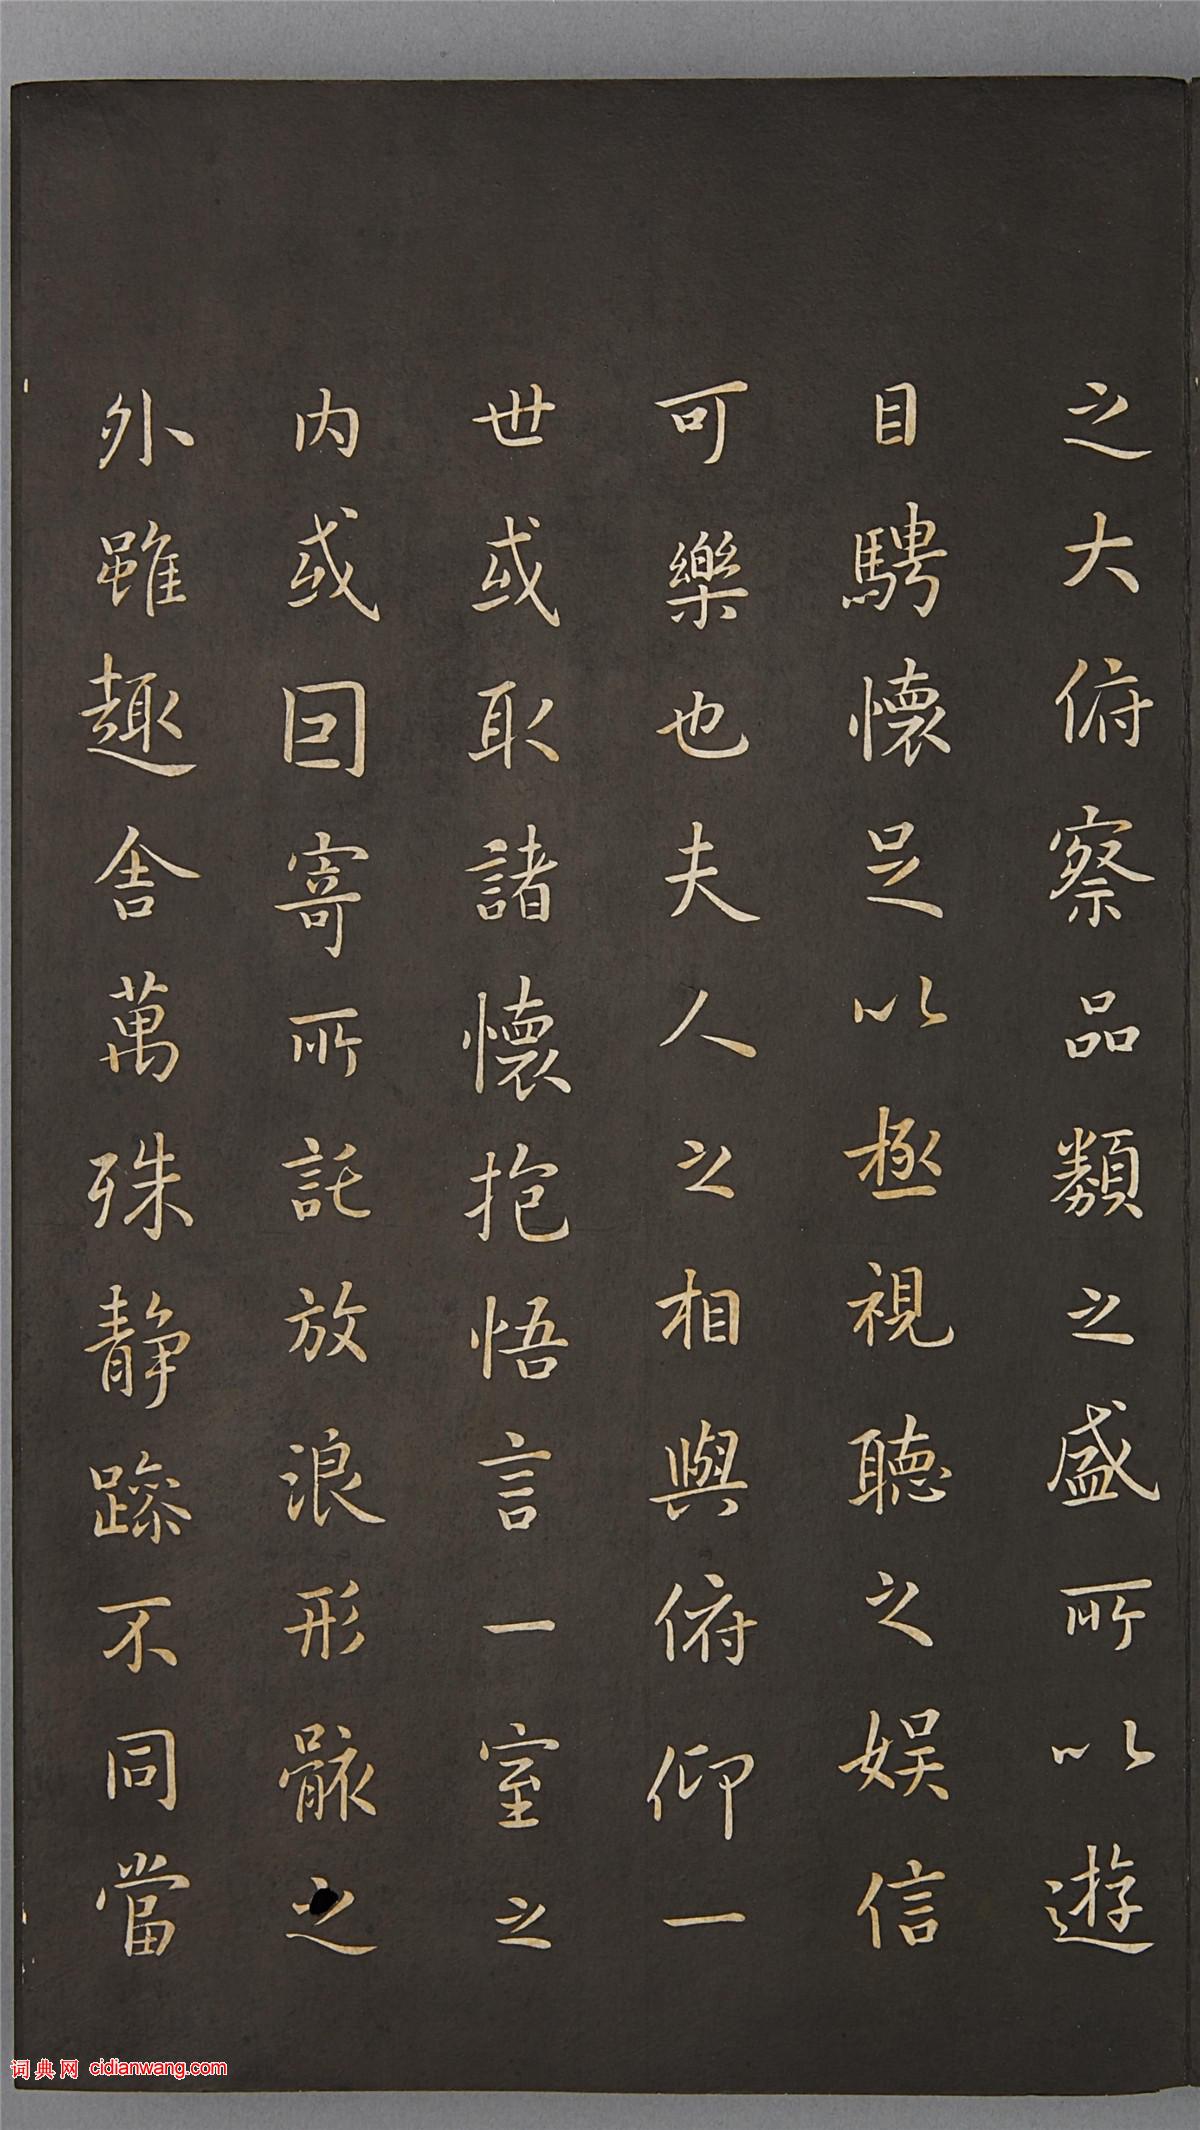 之大俯察品類之盛所以遊
目騁懷足以極視聽之娛信
可樂也夫人之相與俯仰一
世或取諸懷抱悟言一室之
内或囙寄所託放浪形骸之
外雖趣舍萬殊静躁不同當
词典网 cidianwang.com